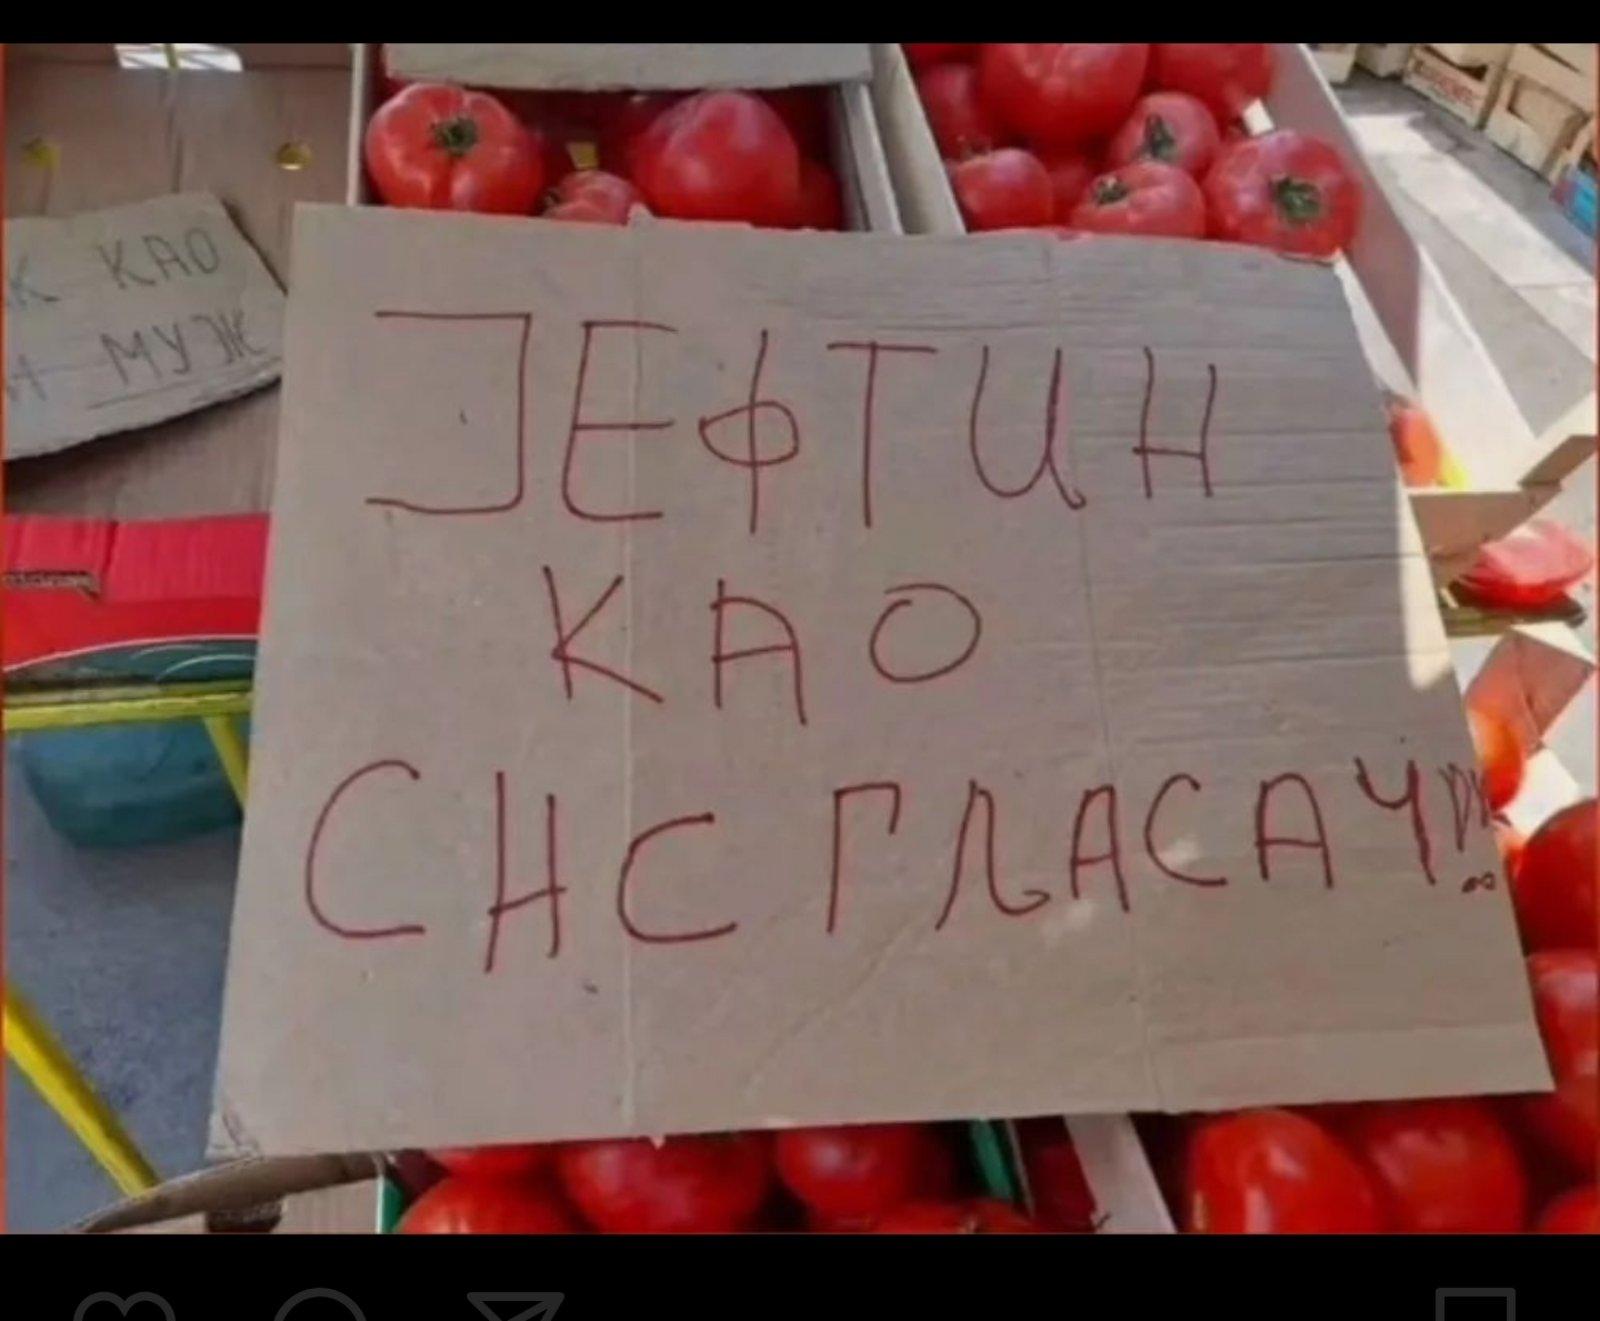 КАО
МУЖ
ЈЕФТИН
КАО
СНС ГЛАСАЧ!!!